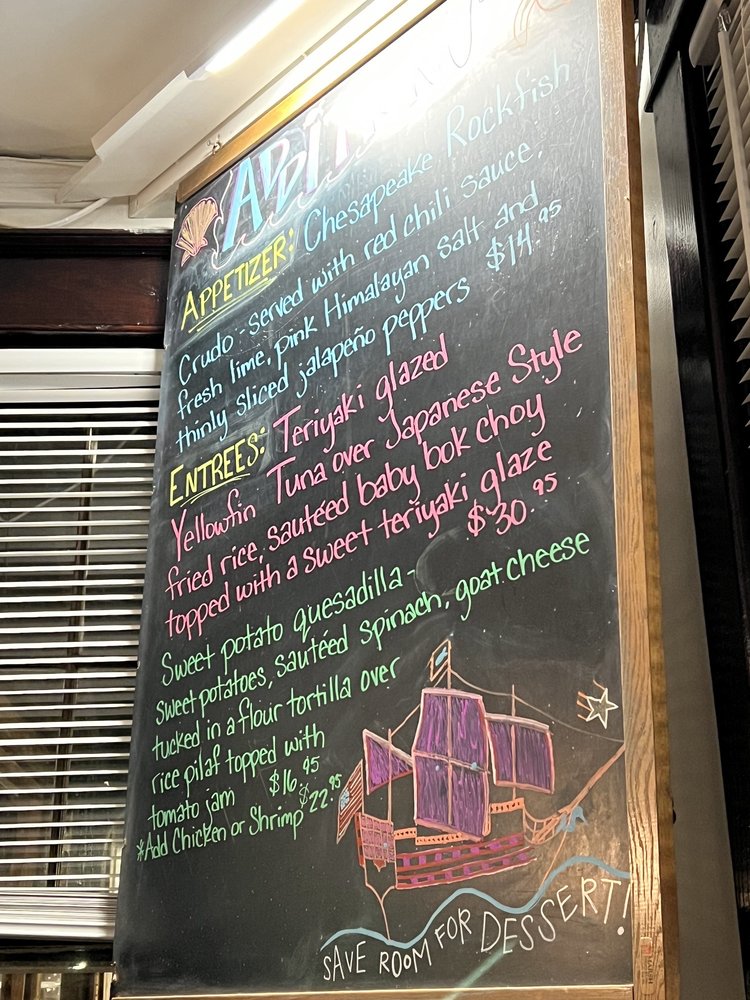 APPETIZER: Chesapeake Rockfish
Crudo - served with red chili sauce,
fresh lime, pink Himalayan salt and
thinly sliced jalapeño peppers $14.95
ENTREES: Teriyaki glazed
Yellowfin Tuna over Japanese Style
fried rice, sautéed baby bok choy
topped with a sweet teriyaki glaze
$30.95
Sweet potato quesadilla -
sweet potatoes, sautéed spinach, goat cheese
tucked in a flour tortilla over
rice pilaf topped with
tomato jam $16.95
*Add Chicken or Shrimp $22.95
SAVE ROOM FOR DESSERT!